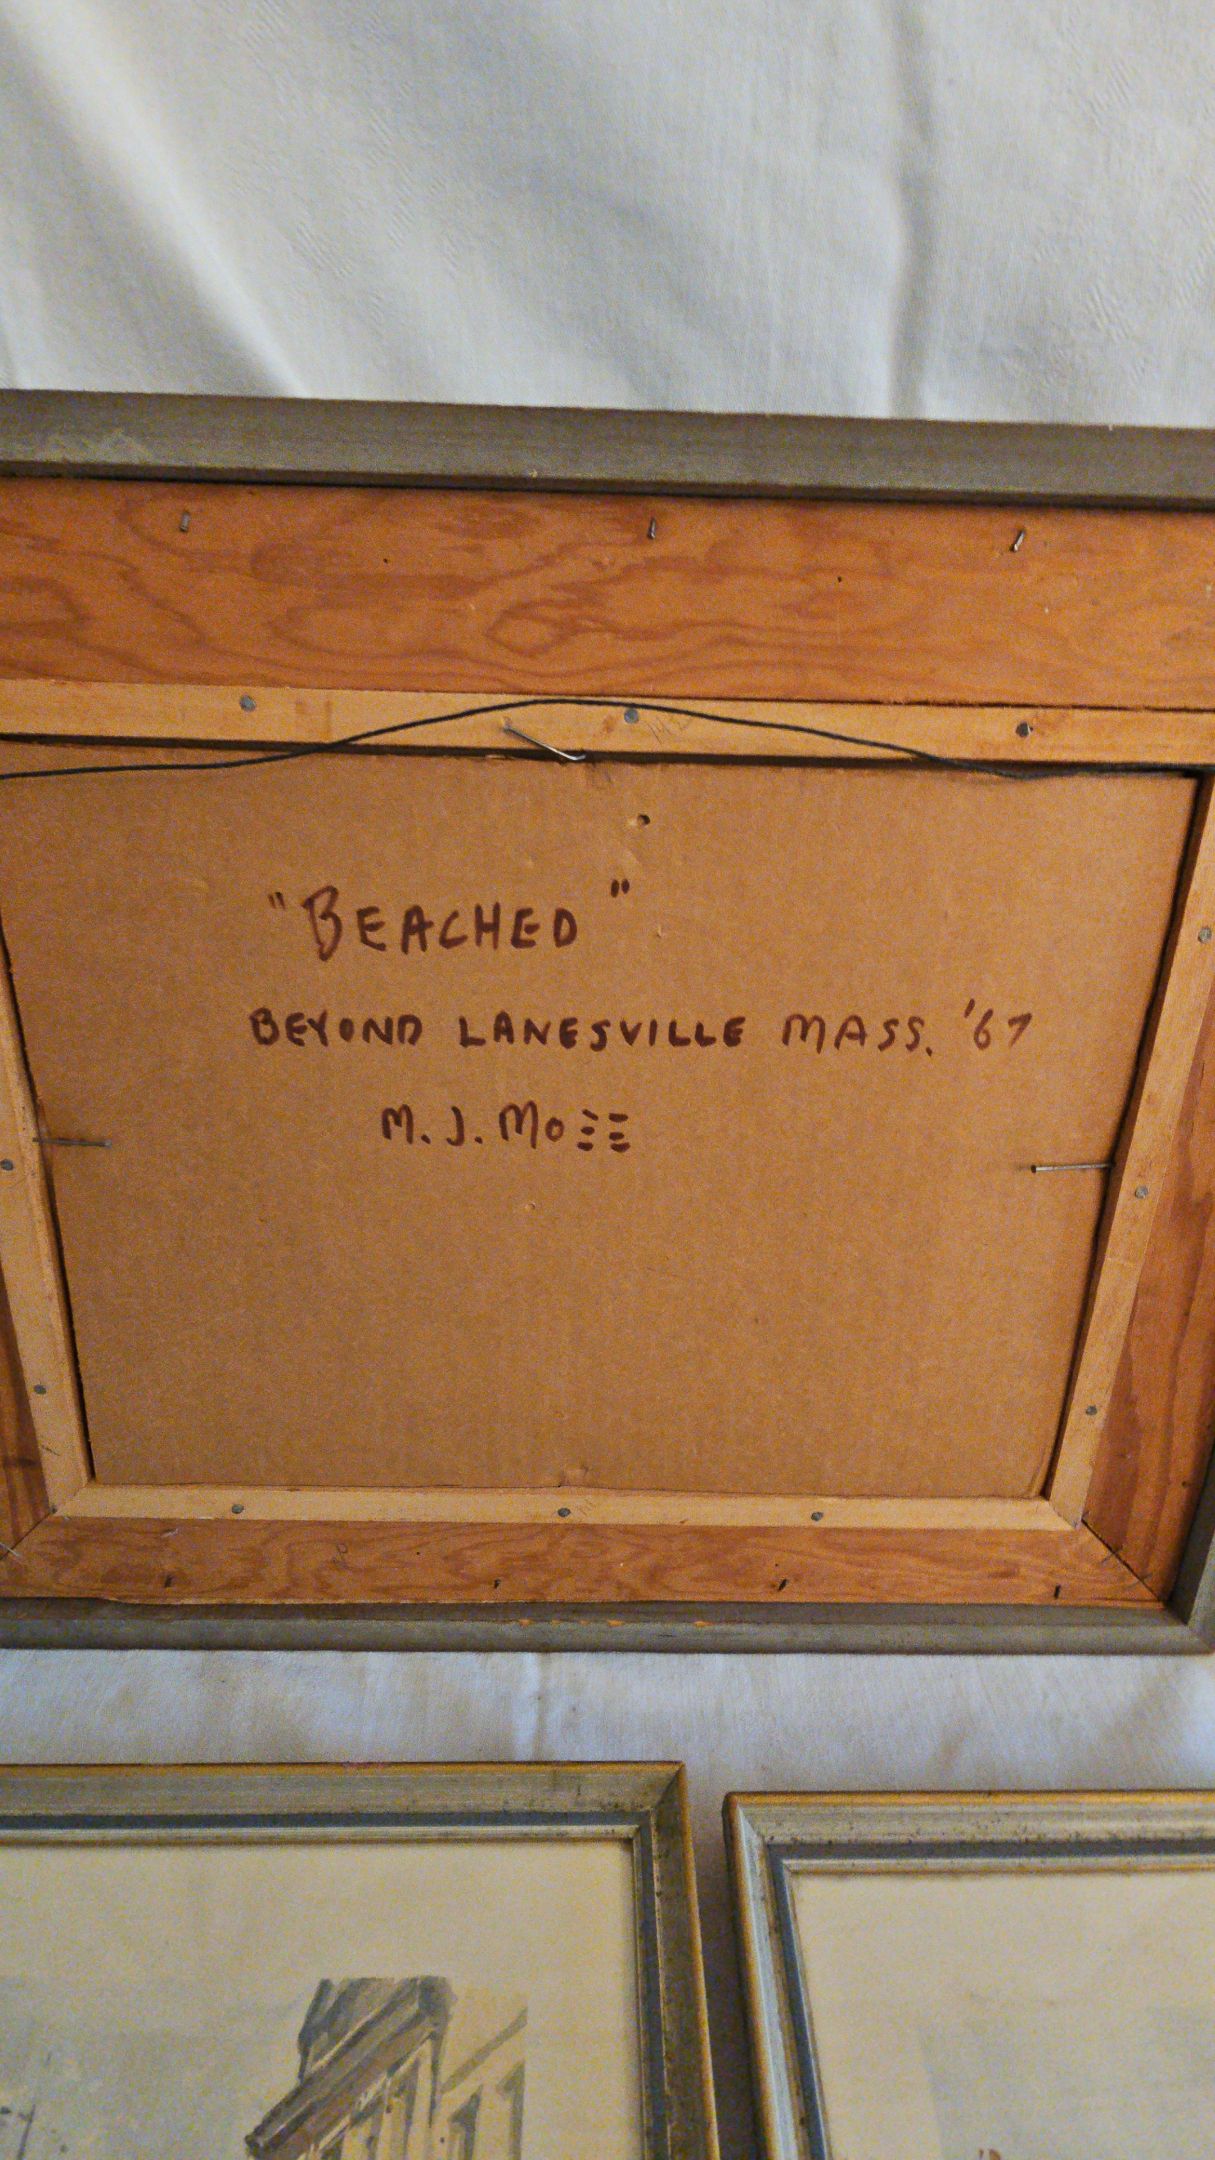 "BEACHED"
BEYOND LANESVILLE MASS. '67
M. J.